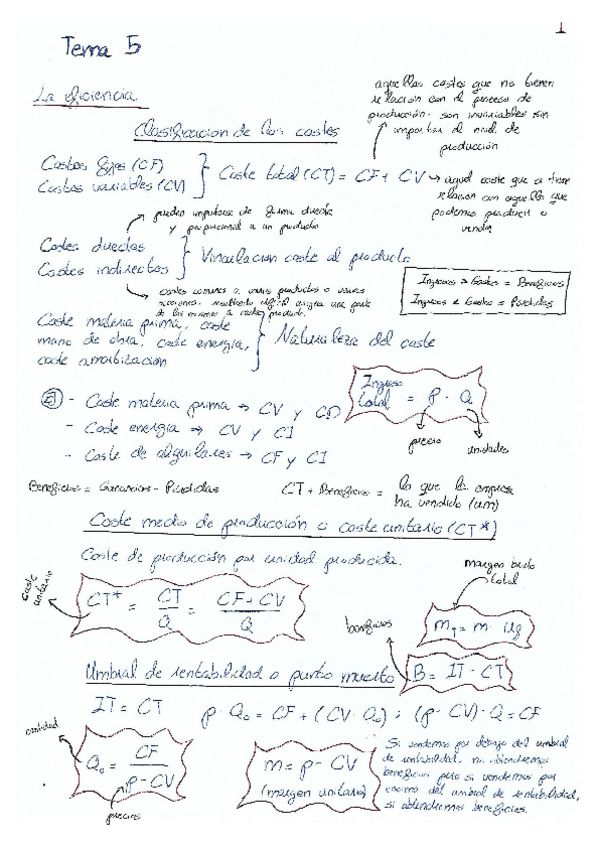 1
Tema 5
La eficiencia.
aquellos costes que no tienen
relacion con el proceso de
producción. son invariables sin
importar el nivel de
producción
Clasificacion de los costes
Costes fijos (CF)
Costes variables (CV)
Coste total (CT) = CF + CV → aquel coste que si tiene
relacion con aquello que
podemos producir o
vender
pueden imputarse de forma directa
y proporcional a un producto
Costes directos
Costes indirectos
Vinculacion coste al producto
costes comunes a varios productos o varias
secciones. resultando dificil asignar una parte
de los mismos a cada product.
Ingresos > Gastos = Beneficios
Ingresos < Gastos = Perdidas
Coste materia prima, coste
mano de obra, coste energía,
coste amortizacion
Naturaleza del coste
Ej - Coste materia prima → CV y CD
- Coste energia → CV y CI
- Coste de alquileres → CF y CI
Ingreso
total = P · Q
precio
unidades
Beneficios = Ganancias - Pérdidas
CT + Beneficios = lo que la empresa
ha vendido (um)
Coste medio de producción o coste unitario (CT*)
Coste de producción por unidad producida.
coste
unitario
CT* = CT / Q = CF + CV / Q
margen bruto
total
m_T = m · Ug
beneficios
B = IT - CT
Umbral de rentabilidad o punto muerto
IT = CT
p · Q₀ = CF + (CV · Q₀) ; (p - CV) · Q = CF
cantidad
Q₀ = CF / p - CV
precios
m = p - CV
(margen unitario)
Si vendemos por debajo del umbral
de rentabilidad no obtendremos
beneficios pero si vendemos por
encima del umbral de rentabilidad,
si obtendremos beneficios.